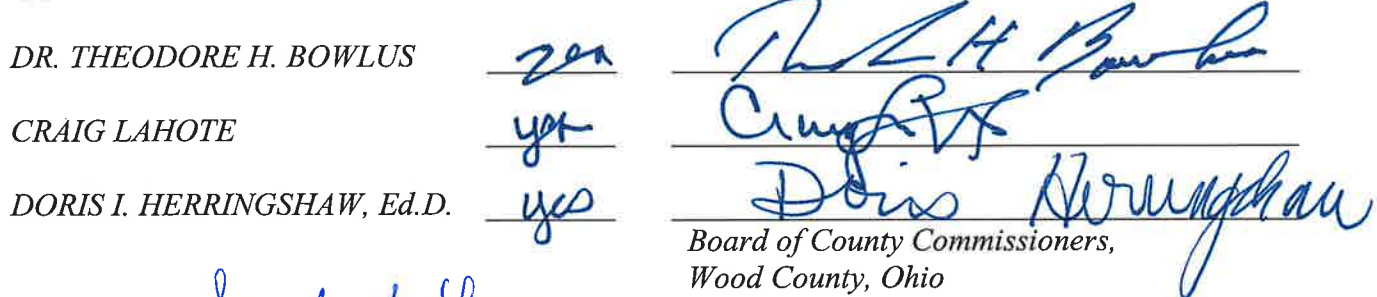 DR. THEODORE H. BOWLUS yea Theodore H Bowlus
CRAIG LAHOTE yes Craig LaHote
DORIS I. HERRINGSHAW, Ed.D. yes Doris Herringshaw
Board of County Commissioners,
Wood County, Ohio